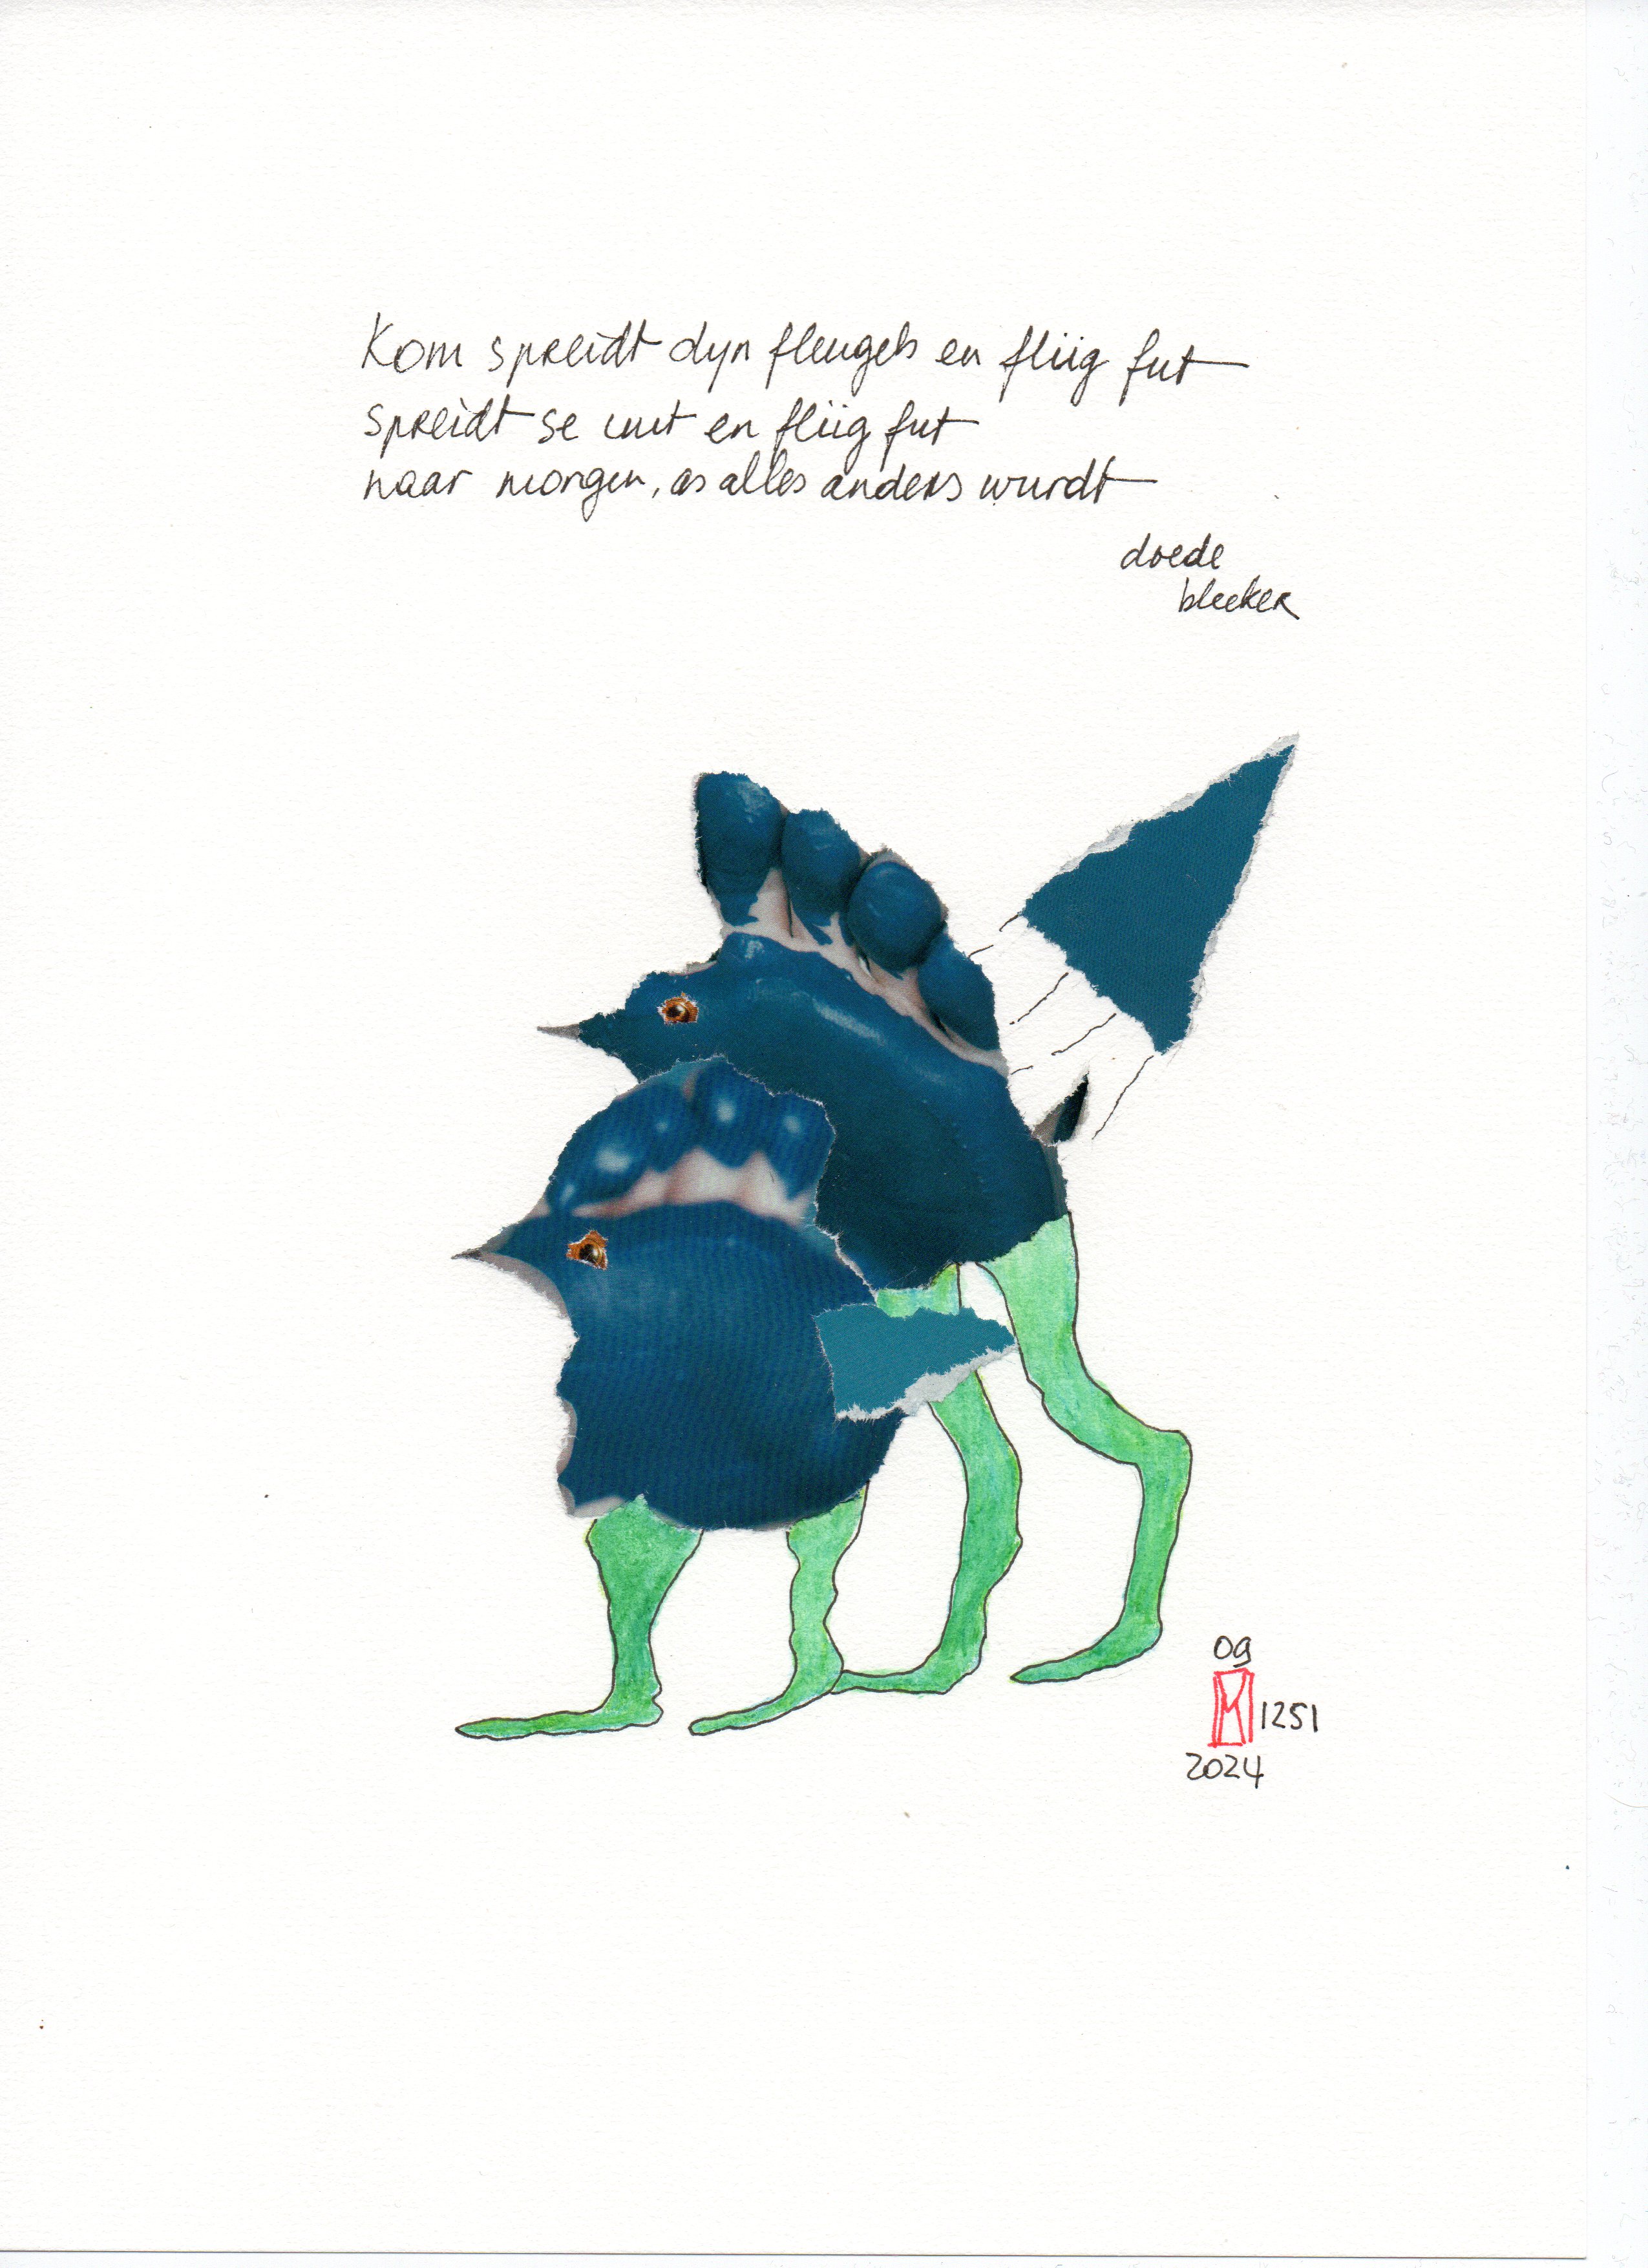 Kom spreidt dyn fleugels en fliig fut
spreidt se uut en fliig fut
naar morgen, as alles anders wurdt
doede
bleeker
09
1251
2024